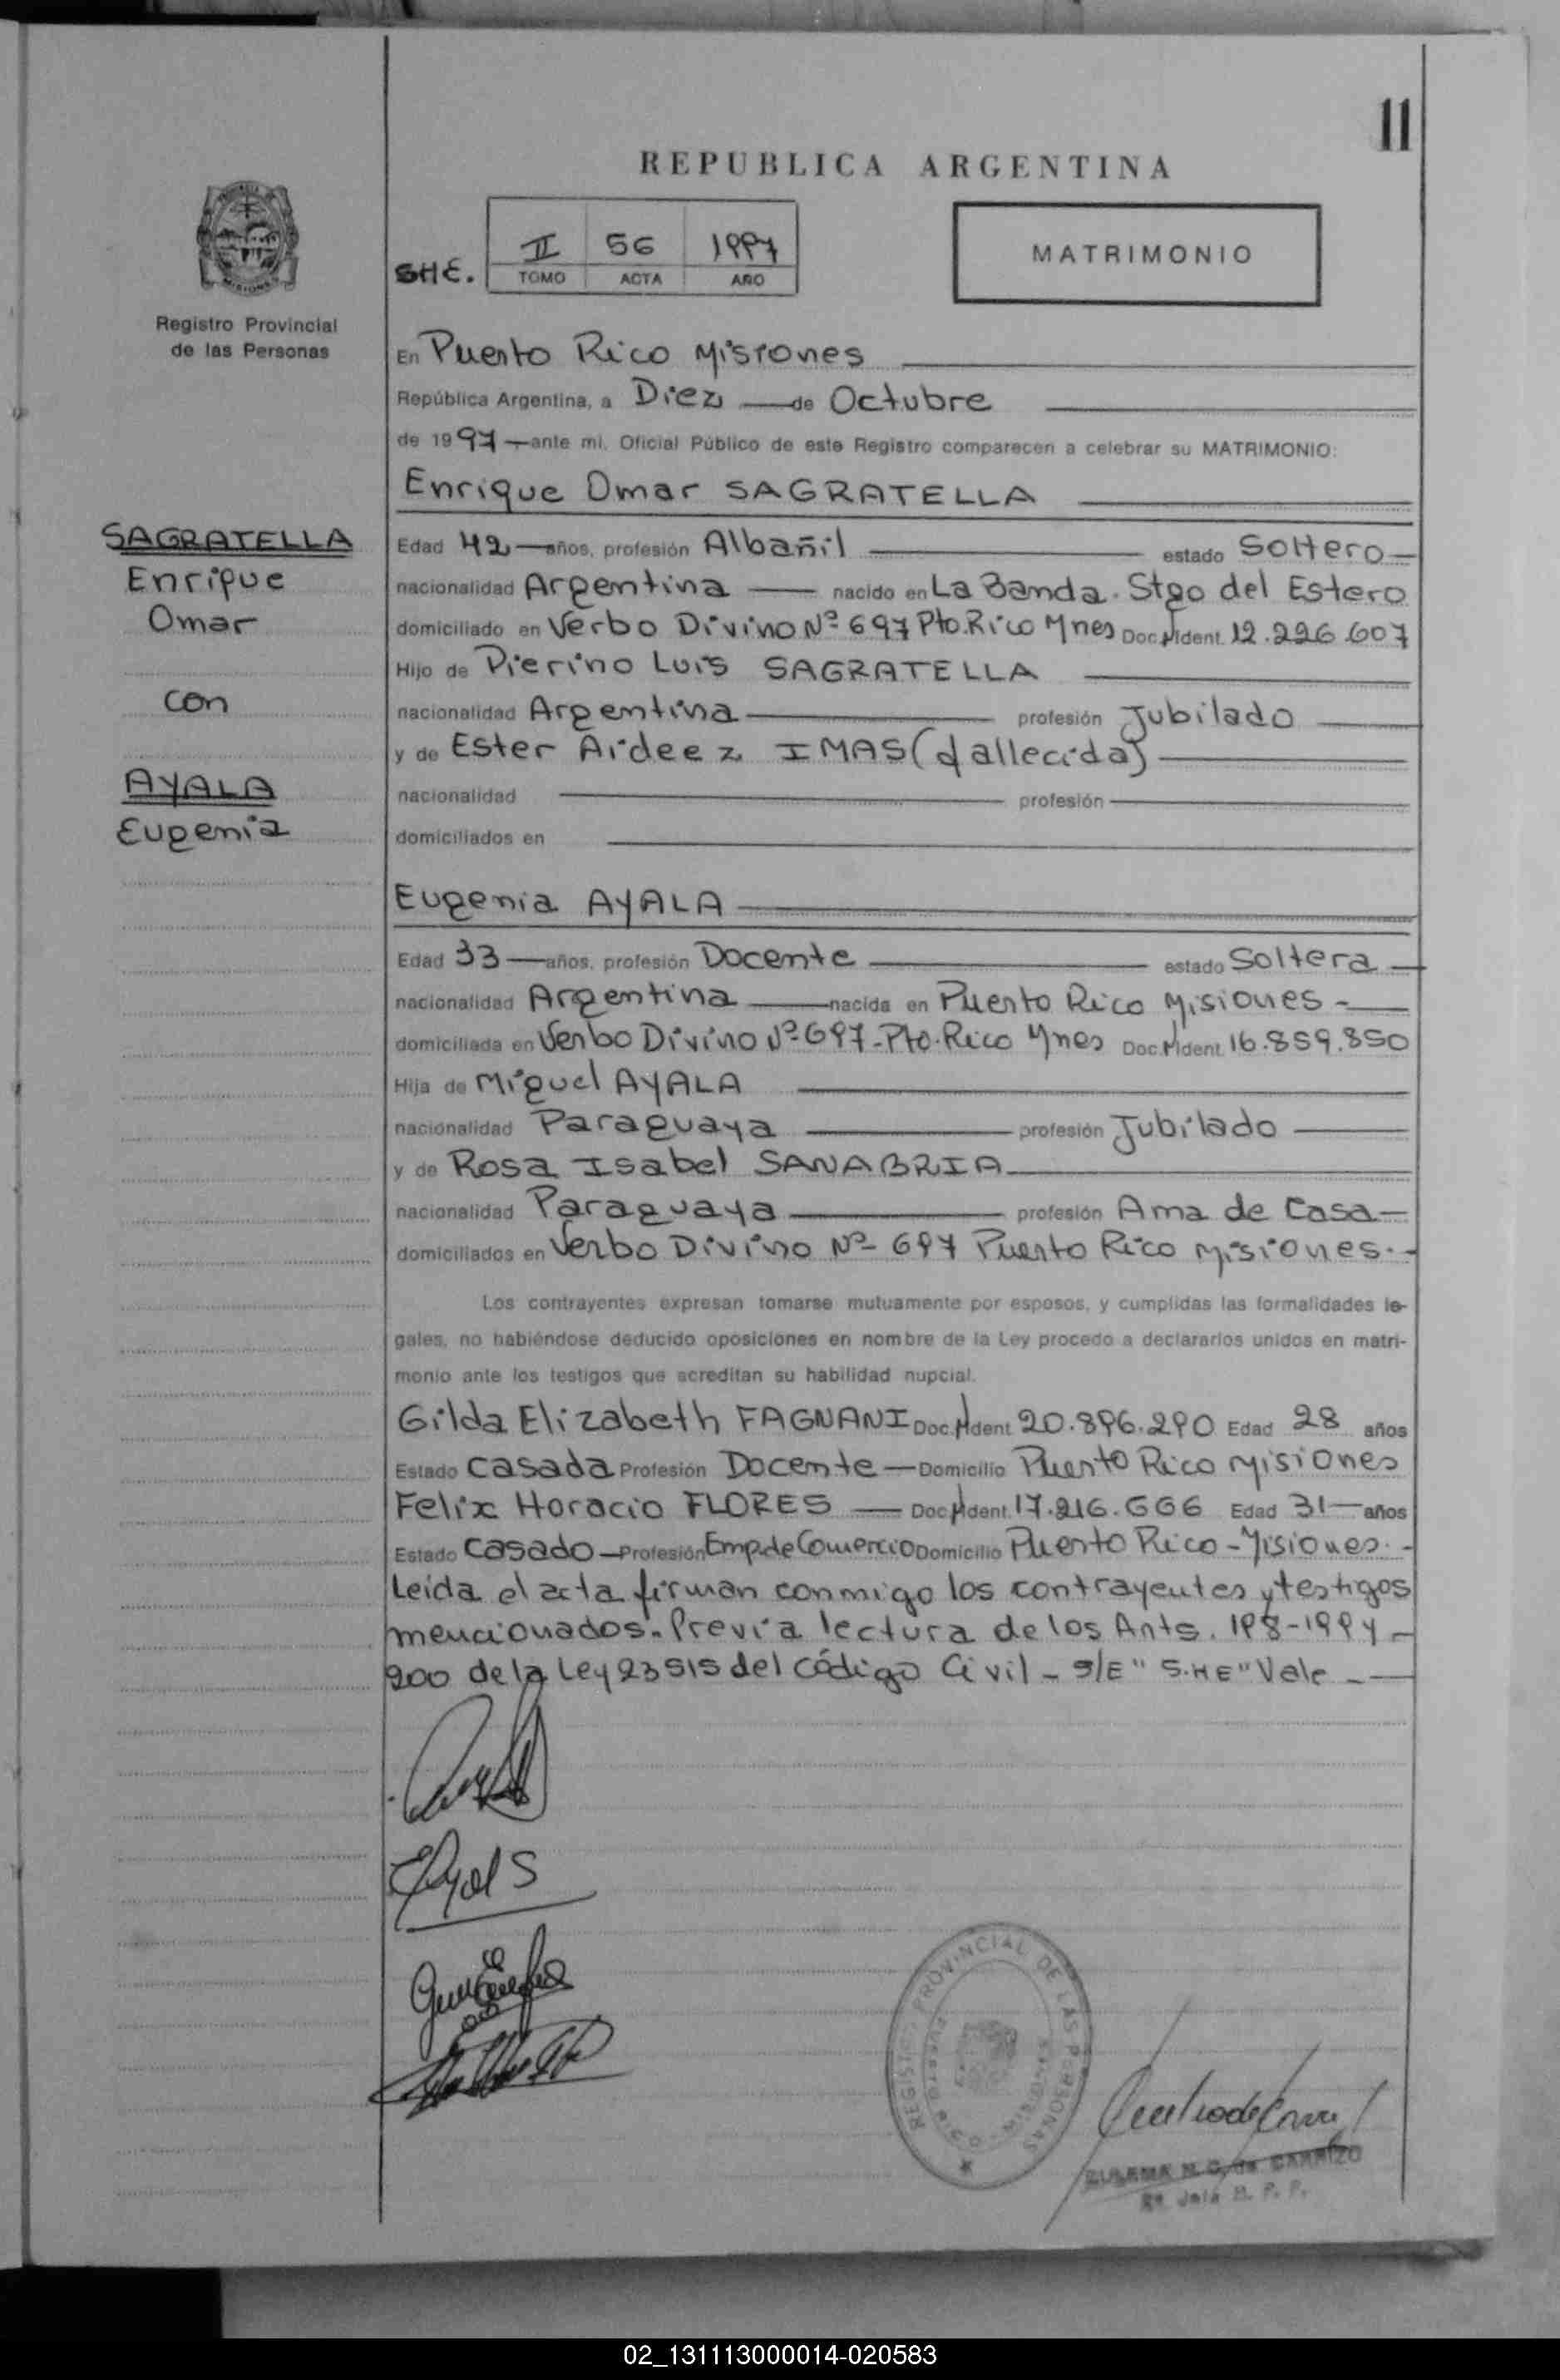 11
REPUBLICA ARGENTINA
SHE.
II 56 1997
TOMO ACTA AÑO
MATRIMONIO
Registro Provincial
de las Personas
En Puerto Rico Misiones
República Argentina, a Diez de Octubre
de 1997 ante mi, Oficial Público de este Registro comparecen a celebrar su MATRIMONIO:
Enrique Omar SAGRATELLA
SAGRATELLA
Enrique
Omar
con
AYALA
Eugenia
Edad 42 años, profesión Albañil estado Soltero
nacionalidad Argentina nacido en La Banda. Stgo del Estero
domiciliado en Verbo Divino Nº 697 Pto. Rico Mnes Doc. Nident. 12.226.607
Hijo de Pierino Luis SAGRATELLA
nacionalidad Argentina profesión Jubilado
y de Ester Aidee z IMAS (fallecida)
nacionalidad profesión
domiciliados en
Eugenia AYALA
Edad 33 años, profesión Docente estado Soltera
nacionalidad Argentina nacida en Puerto Rico Misiones -
domiciliada en Verbo Divino Nº 697 - Pto. Rico Mnes Doc. Nident. 16.859.850
Hija de Miguel AYALA
nacionalidad Paraguaya profesión Jubilado
y de Rosa Isabel SANABRIA
nacionalidad Paraguaya profesión Ama de Casa
domiciliados en Verbo Divino Nº 697 Puerto Rico Misiones. -
Los contrayentes expresan tomarse mutuamente por esposos, y cumplidas las formalidades le-
gales, no habiéndose deducido oposiciones en nombre de la Ley procedo a declararlos unidos en matri-
monio ante los testigos que acreditan su habilidad nupcial.
Gilda Elizabeth FAGNANI Doc. Nident. 20.896.290 Edad 28 años
Estado Casada Profesión Docente Domicilio Puerto Rico Misiones
Felix Horacio FLORES Doc. Nident. 17.216.666 Edad 31 años
Estado Casado Profesión Emp. de Comercio Domicilio Puerto Rico - Misiones. -
Leída el acta firman conmigo los contrayentes y testigos
mencionados. Previa lectura de los Arts. 198-199 y -
200 de la Ley 23515 del Código Civil - S/E "S.HE" Vale -
REGISTRO PROVINCIAL DE LAS PERSONAS
PUERTO RICO - MISIONES
ZULEMA N. C. de CARRIZO
02_131113000014-020583